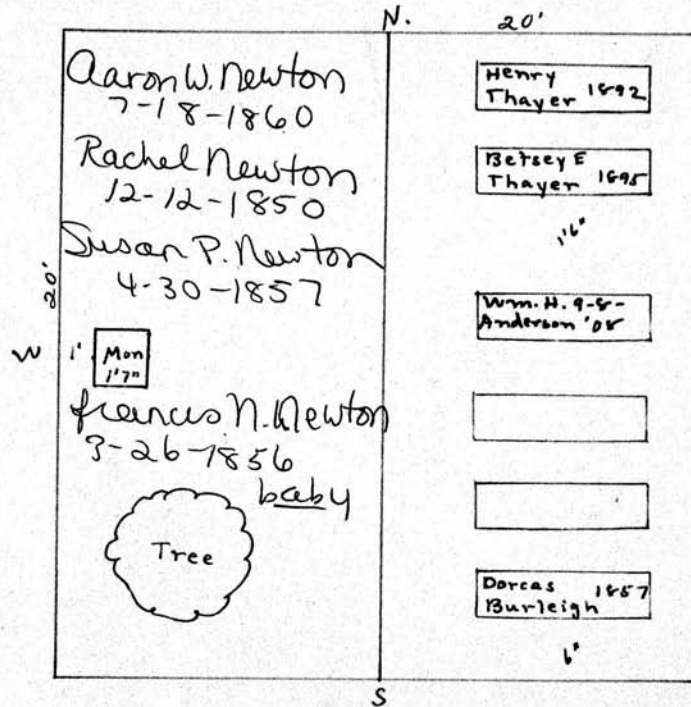 N.
20'
Aaron W. Newton
7-18-1860
Rachel Newton
12-12-1850
Susan P. Newton
4-30-1857
20'
W
1'
Mon
1'7"
Francis N. Newton
3-26-1856
baby
Tree
Henry
Thayer 1892
Betsey E
Thayer 1895
1'6"
Wm. H. 9-8-
Anderson '08
Dorcas 1857
Burleigh
6"
S